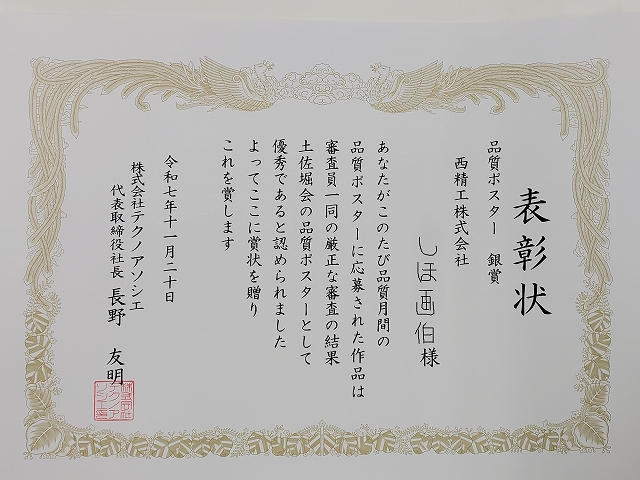 表彰状
品質ポスター 銀賞
西精工株式会社
しほ画伯様
あなたがこのたび品質月間の
品質ポスターに応募された作品は
審査員一同の厳正な審査の結果
土佐堀会の品質ポスターとして
優秀であると認められました
よってここに賞状を贈り
これを賞します
令和七年十一月二十日
株式会社テクノアソシエ
代表取締役社長 長野 友明
株式会社
テクノア
ソシエ